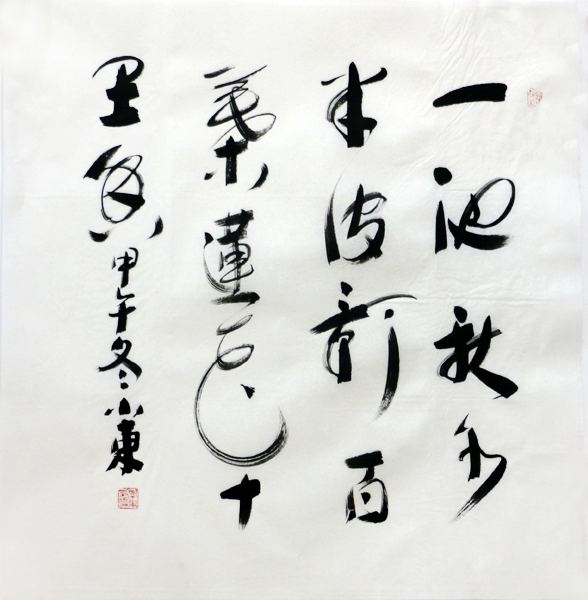 一池秋水
半波影百
葉蓮花十
里香 甲午冬小東